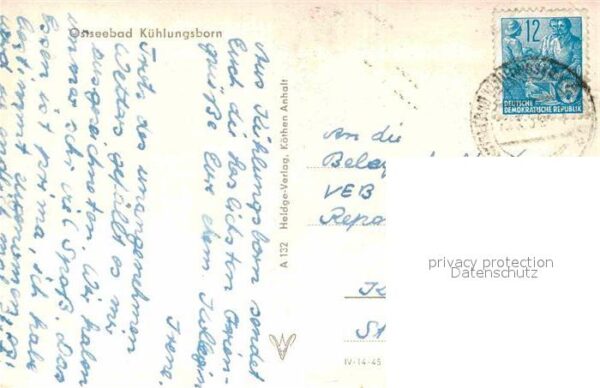 Ostseebad Kühlungsborn
Aus Kühlungsborn sendet
Euch die herzlichsten Ferien-
grüße Eure dem. Kollegin
Irene.
Trotz des unangenehmen
Wetters gefällt es mir
ausgezeichnet. Wir haben
immer sehr viel Spaß. Das
Essen ist prima, ich habe
bestimmt zugenommen.
A 132 Heldge-Verlag, Köthen Anhalt
12
DEUTSCHE
DEMOKRATISCHE REPUBLIK
An die
VEB
IV-14-45
privacy protection
Datenschutz